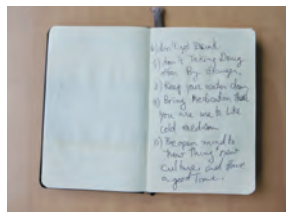 6) don't get Drunk
7) don't Taking Doing
then By Strangers,
8) Keep your water clean
9) Bring Medication that
you are use to Like
Cold medicine
10) Be open mind to
"new Thing" new
Culture, and Have
a good Time.